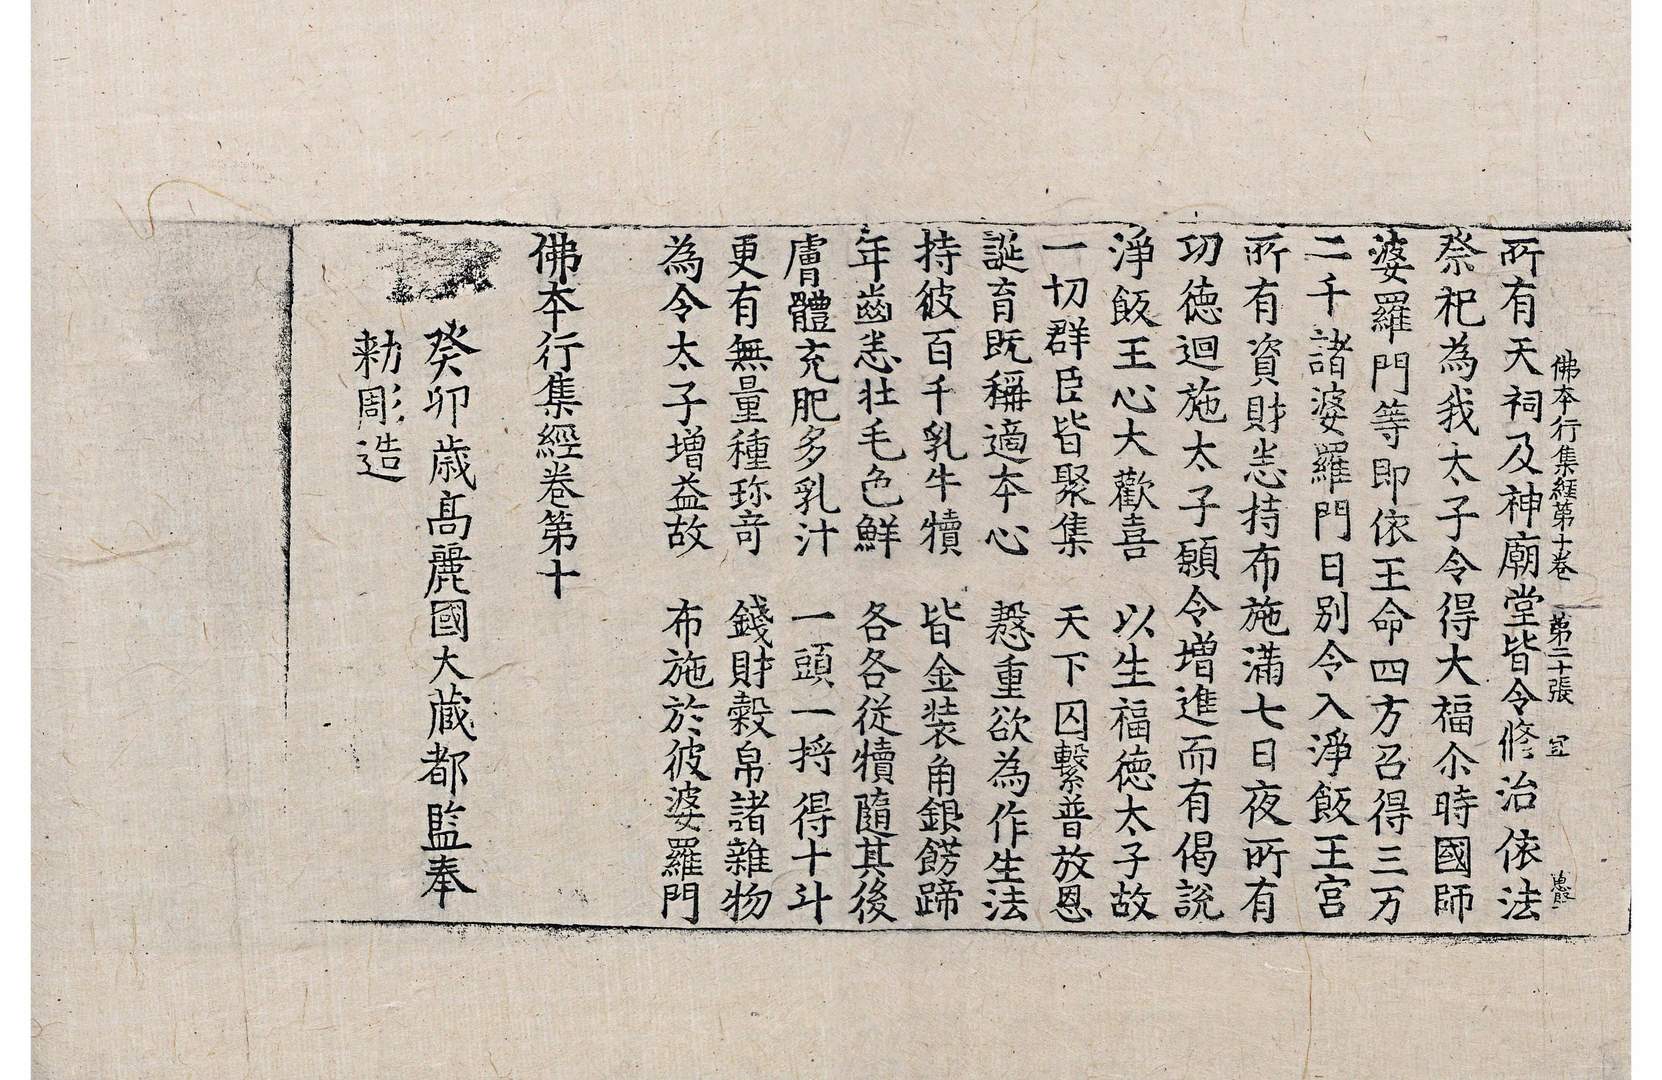 佛本行集經第十卷　第二十張　宜
所有天祠及神廟堂皆令修治依法
祭祀為我太子令得大福尒時國師
婆羅門等即依王命四方召得三万
二千諸婆羅門日別令入淨飯王宮
所有資財悉持布施滿七日夜所有
功德迴施太子願令增進而有偈說
淨飯王心大歡喜　以生福德太子故
一切群臣皆聚集　天下囚繫普放恩
誕育既稱適本心　慇重欲為作生法
持彼百千乳牛犢　皆金装角銀餝蹄
年齒盛壯毛色鮮　各各從犢隨其後
膚體充肥多乳汁　一頭一捋得十斗
更有無量種珎竒　錢財穀帛諸雜物
為令太子增益故　布施於彼婆羅門
佛本行集經卷第十
癸卯歳高麗國大藏都監奉
勅彫造